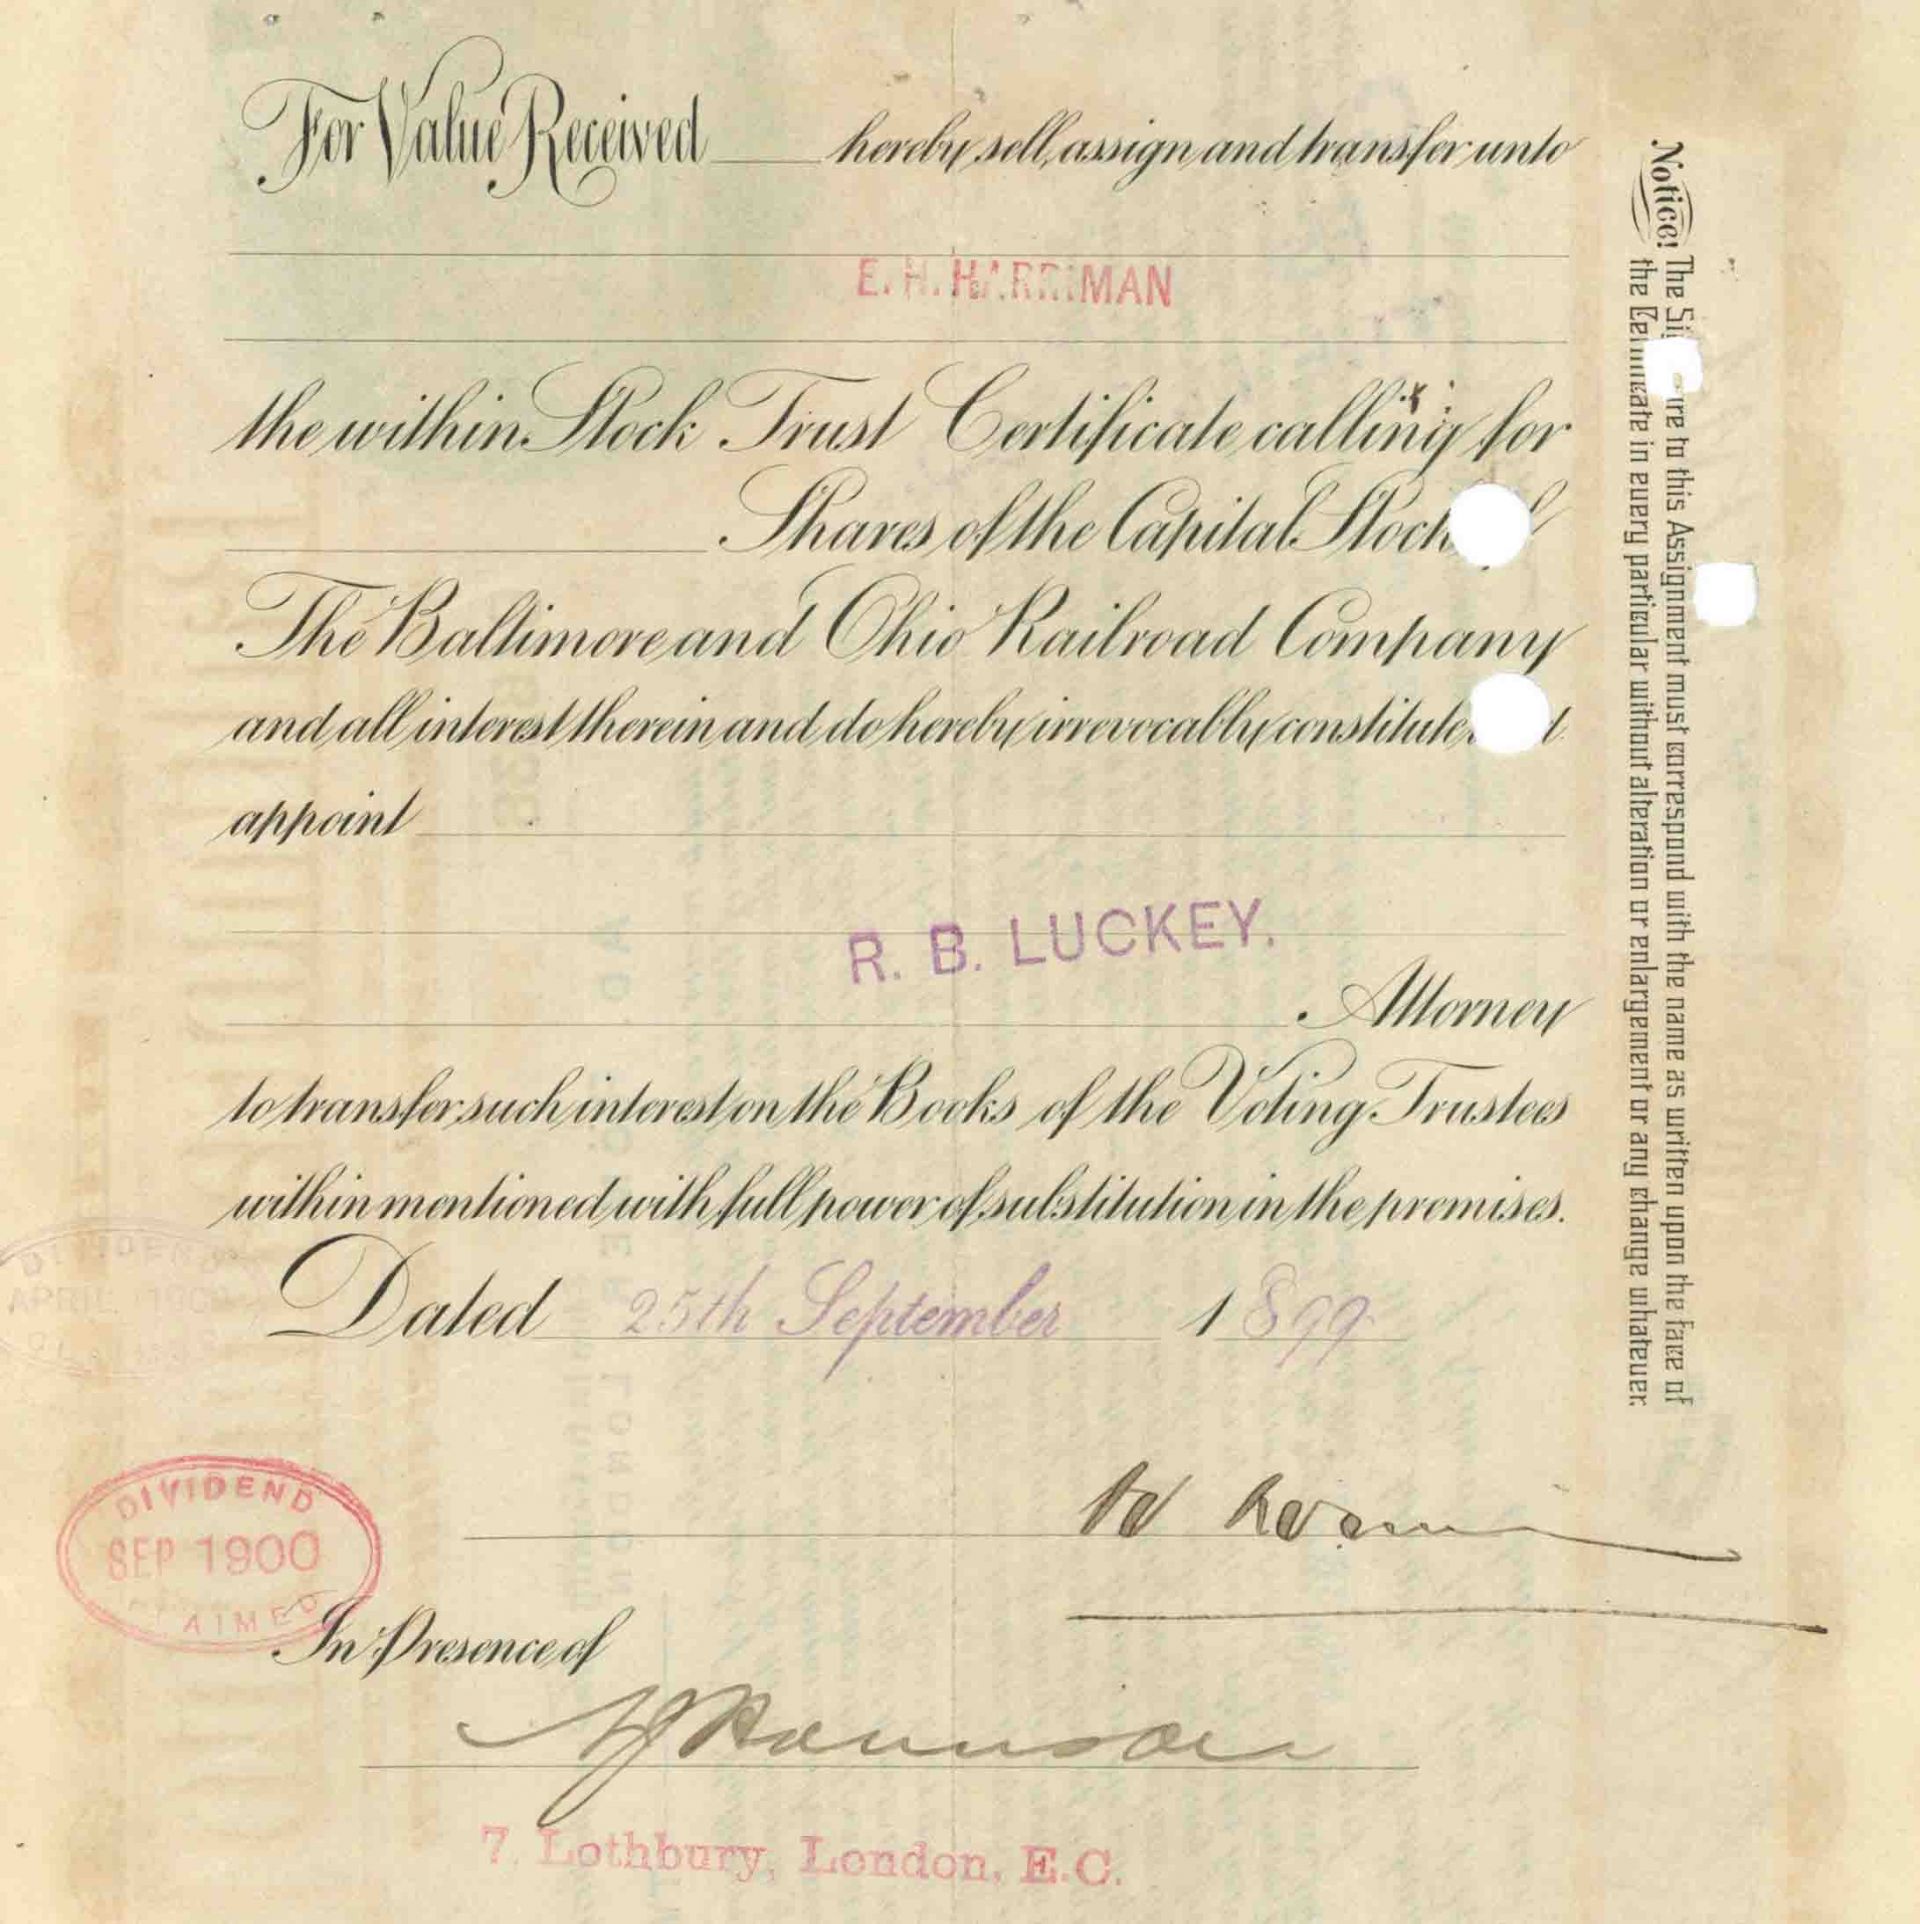 For Value Received hereby sell, assign and transfer unto
E. H. HARRIMAN
the within Stock Trust Certificate calling for
Shares of the Capital Stock
The Baltimore and Ohio Railroad Company
and all interest therein and do hereby irrevocably constitute
appoint
R. B. LUCKEY.
Attorney
to transfer such interest on the Books of the Voting Trustees
within mentioned with full power of substitution in the premises.
Dated 25th September 1899
DIVIDEND
APRIL 1900
DIVIDEND
SEP 1900
CLAIMED
In Presence of
7, Lothbury, London, E.C.
Notice! The Signature to this Assignment must correspond with the name as written upon the face of
the Certificate in every particular without alteration or enlargement or any change whatever.